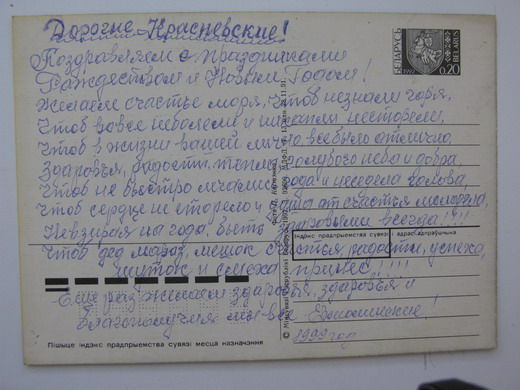 Дорогие Красневские!
Поздравляем с праздниками
Рождеством и Новым Годом!
Желаем счастье моря, чтоб незнали горя,
Чтоб вовсе неболели и
Чтоб в жизни вашей личной всё было отлично,
Здоровья, радости, тепла, голубого неба и добра,
Чтоб не быстро мчались года и неседела голова,
Чтоб сердце не старело и от счастья молодело,
Невзирая на года, быть здоровыми всегда!!!!
Чтоб дед мараз, мешок счастья радости, успеха,
шуток и смеха принес!!!!
Еще раз желаем здоровья, здоровья и
благополучия
1999 год
БЕЛАРУСЬ
1992
0.20
BELARUS
Індэкс прадпрыемства сувязі і адрас адпраўшчыка
Пішыце індэкс прадпрыемства сувязі месца назначэння